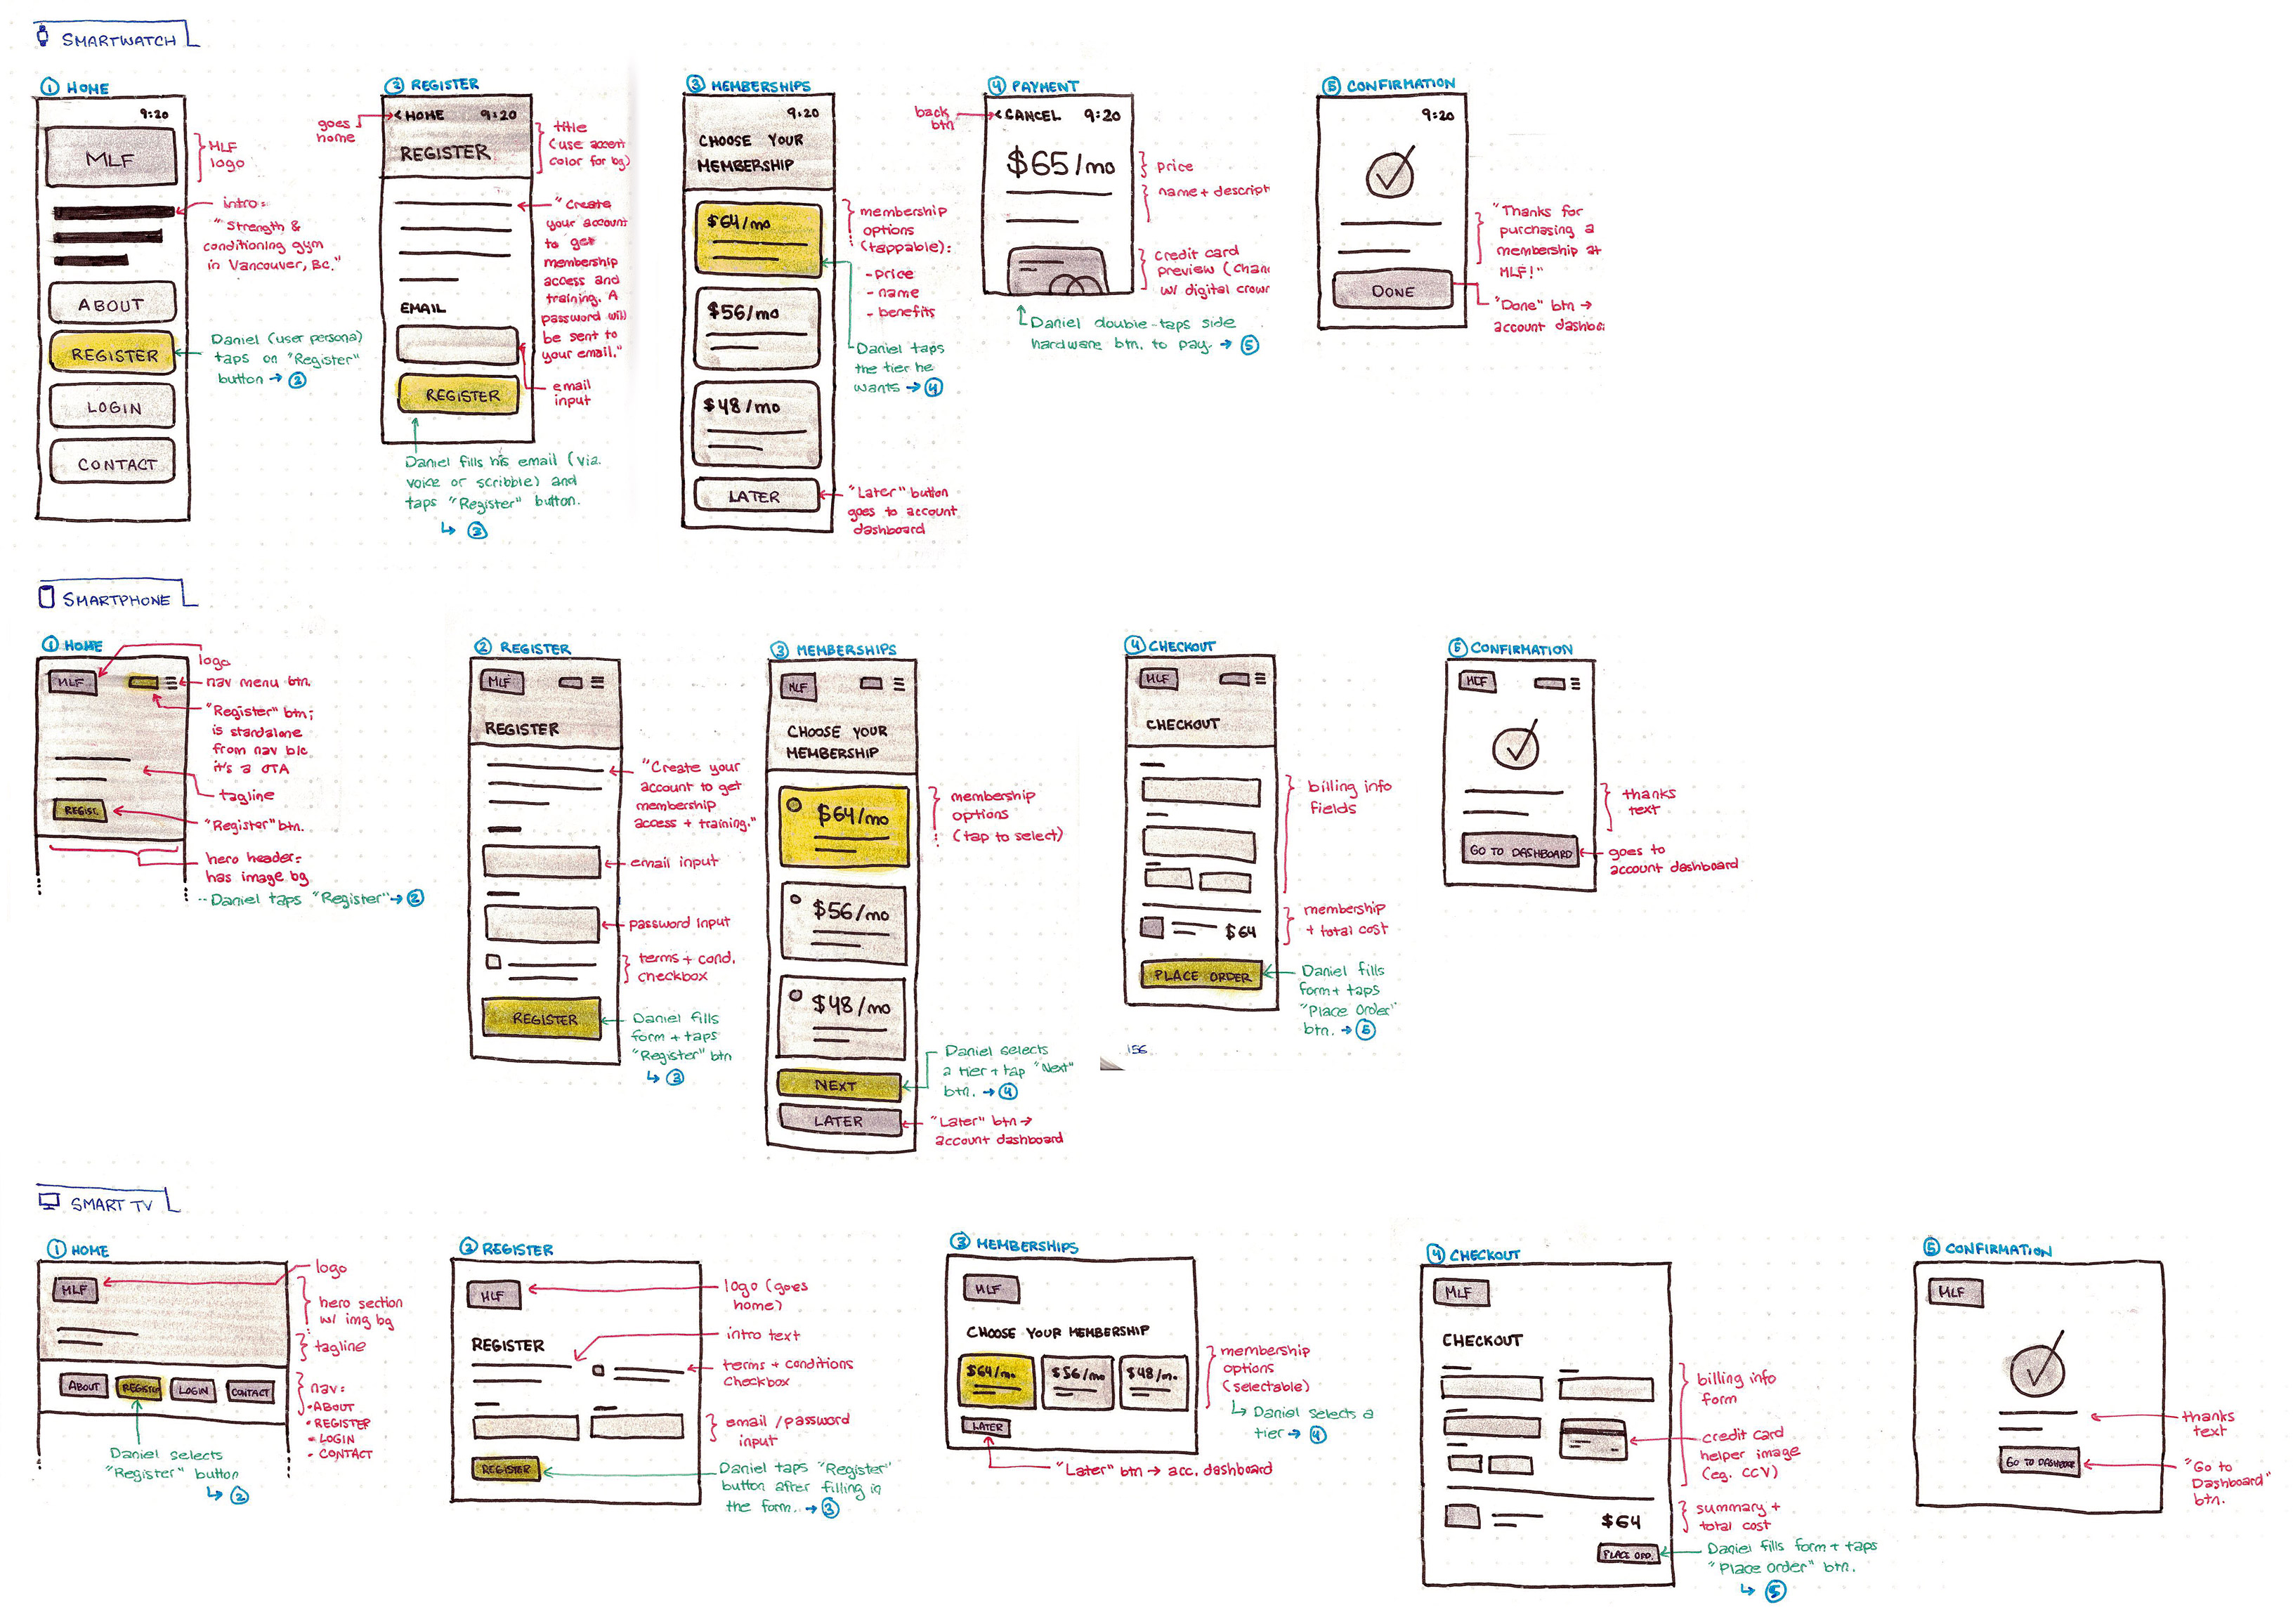 SMARTWATCH
① HOME
9:20
MLF
MLF
logo
intro:
"Strength &
conditioning gym
in Vancouver, BC."
ABOUT
REGISTER
LOGIN
CONTACT
Daniel (user persona)
taps on "Register"
button → ②
② REGISTER
< HOME 9:20
REGISTER
goes
home
title
(use accent
color for bg)
"Create
your account
to get
membership
access and
training. A
password will
be sent to
your email."
EMAIL
email
input
REGISTER
Daniel fills his email (via
voice or scribble) and
taps "Register" button.
↳ ③
③ MEMBERSHIPS
9:20
CHOOSE YOUR
MEMBERSHIP
$64/mo
$56/mo
$48/mo
LATER
membership
options
(tappable):
- price
- name
- benefits
Daniel taps
the tier he
wants → ④
"Later" button
goes to account
dashboard
④ PAYMENT
back
btn
< CANCEL 9:20
$65/mo
price
name + descript
credit card
preview (chan
w/ digital crow
Daniel double-taps side
hardware btn. to pay. → ⑤
⑤ CONFIRMATION
9:20
"Thanks for
purchasing a
membership at
MLF!"
DONE
"Done" btn →
account dashbo
SMARTPHONE
① HOME
MLF
logo
nav menu btn.
"Register" btn;
is standalone
from nav b/c
it's a CTA
tagline
REGIST.
"Register" btn.
hero header:
has image bg
Daniel taps "Register" → ②
② REGISTER
MLF
REGISTER
"Create your
account to get
membership
access + training."
email input
password input
terms + cond.
checkbox
REGISTER
Daniel fills
form + taps
"Register" btn
↳ ③
③ MEMBERSHIPS
MLF
CHOOSE YOUR
MEMBERSHIP
$64/mo
$56/mo
$48/mo
NEXT
LATER
membership
options
(tap to select)
Daniel selects
a tier + tap "Next"
btn. → ④
"Later" btn →
account dashboard
④ CHECKOUT
MLF
CHECKOUT
billing info
fields
membership
+ total cost
$64
PLACE ORDER
Daniel fills
form + taps
"Place Order"
btn. → ⑤
156
⑤ CONFIRMATION
MLF
thanks
text
GO TO DASHBOARD
goes to
account dashboard
SMART TV
① HOME
MLF
logo
hero section
w/ img bg
tagline
ABOUT
REGISTER
LOGIN
CONTACT
nav:
• ABOUT
• REGISTER
• LOGIN
• CONTACT
Daniel selects
"Register" button
↳ ②
② REGISTER
MLF
logo (goes
home)
REGISTER
intro text
terms + conditions
checkbox
email / password
input
REGISTER
Daniel taps "Register"
button after filling in
the form. → ③
③ MEMBERSHIPS
MLF
CHOOSE YOUR MEMBERSHIP
$64/mo
$56/mo
$48/m.
LATER
membership
options
(selectable)
↳ Daniel selects a
tier → ④
"Later" btn → acc. dashboard
④ CHECKOUT
MLF
CHECKOUT
billing info
form
credit card
helper image
(eg. CCV)
summary +
total cost
$64
PLACE ORD.
Daniel fills form + taps
"Place Order" btn.
↳ ⑤
⑤ CONFIRMATION
MLF
thanks
text
GO TO DASHBOARD
"Go to
Dashboard"
btn.